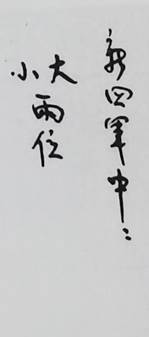 新四军中：
大雨位
小